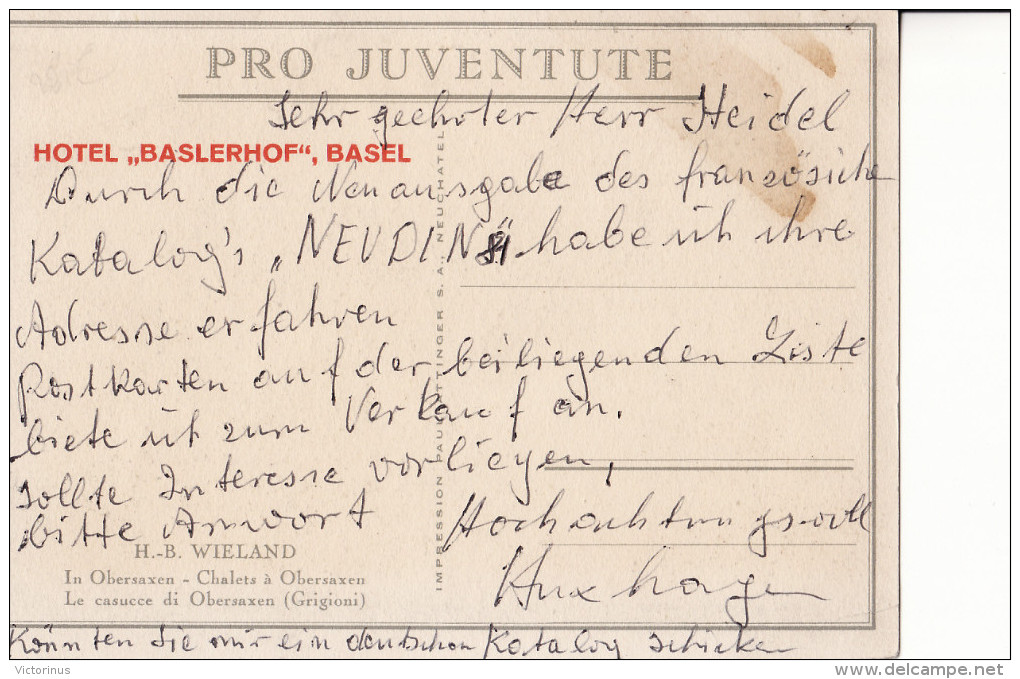 PRO JUVENTUTE
Sehr geehrter Herr Heidel
HOTEL „BASLERHOF“, BASEL
Durch die Neuausgabe des französiche
Katalog's „NEUDIN 81" habe ich ihre
Adresse erfahren
Postkarten auf der beiliegenden Liste
biete ich zum Verkauf an.
Sollte Interesse vorliegen,
bitte Anwort Hochachtungsvoll
H.-B. WIELAND
In Obersaxen - Chalets à Obersaxen
Le casucce di Obersaxen (Grigioni)
Huxhagen
Könnten Sie mir ein deutschen Katalog schicken
IMPRESSION PAUL ATTINGER S. A., NEUCHATEL
Victorinus
delcampe.net